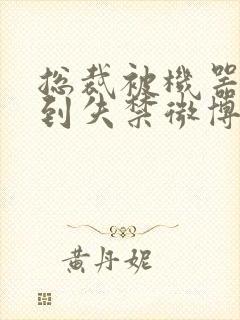 总裁被機器
到失禁微博
黄丹妮